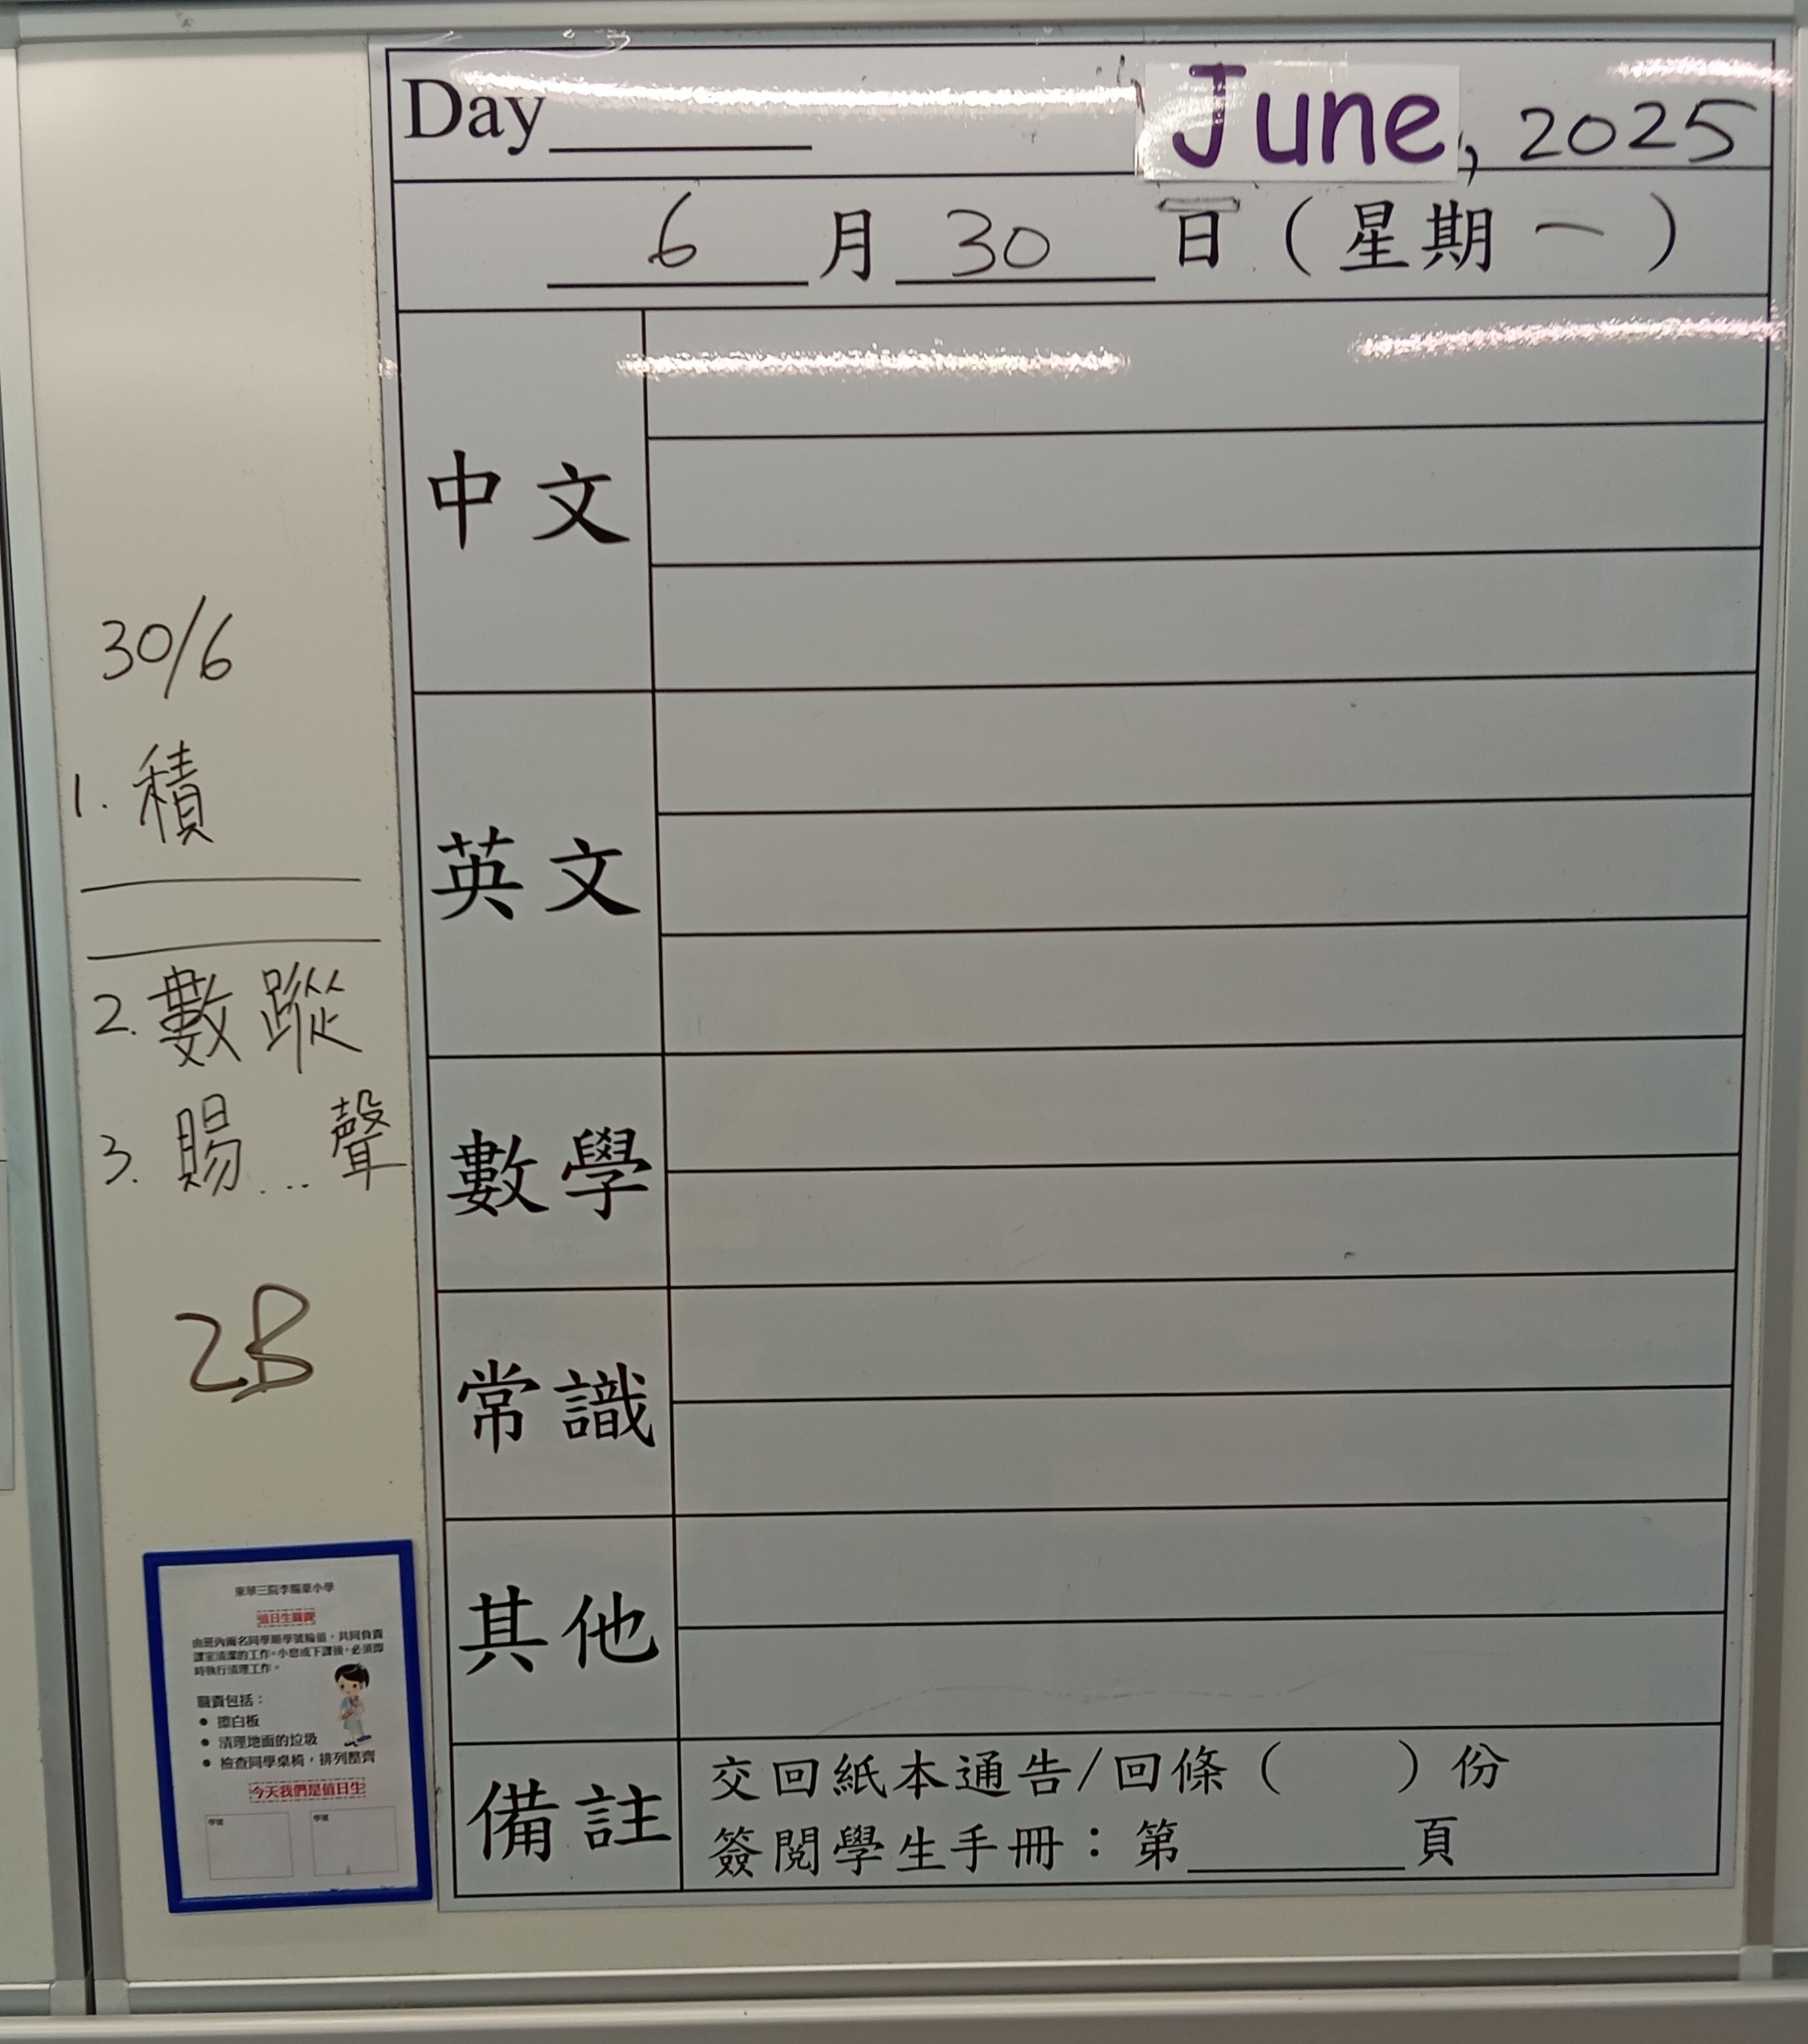 Day______ June, 2025
6 月 30 日 ( 星期 一 )
中文
英文
數學
常識
其他
備註
交回紙本通告/回條 (　　) 份
簽閱學生手冊：第______頁
30/6
1. 積
2. 數蹤
3. 賜...聲
2B
東華三院李賜豪小學
值日生職責
由班內兩名同學順學號輪值，共同負責
課室清潔的工作。小息或下課後，必須即
時執行清理工作。
職責包括：
● 擦白板
● 清理地面的垃圾
● 檢查同學桌椅，排列整齊
今天我們是值日生
學號 學號